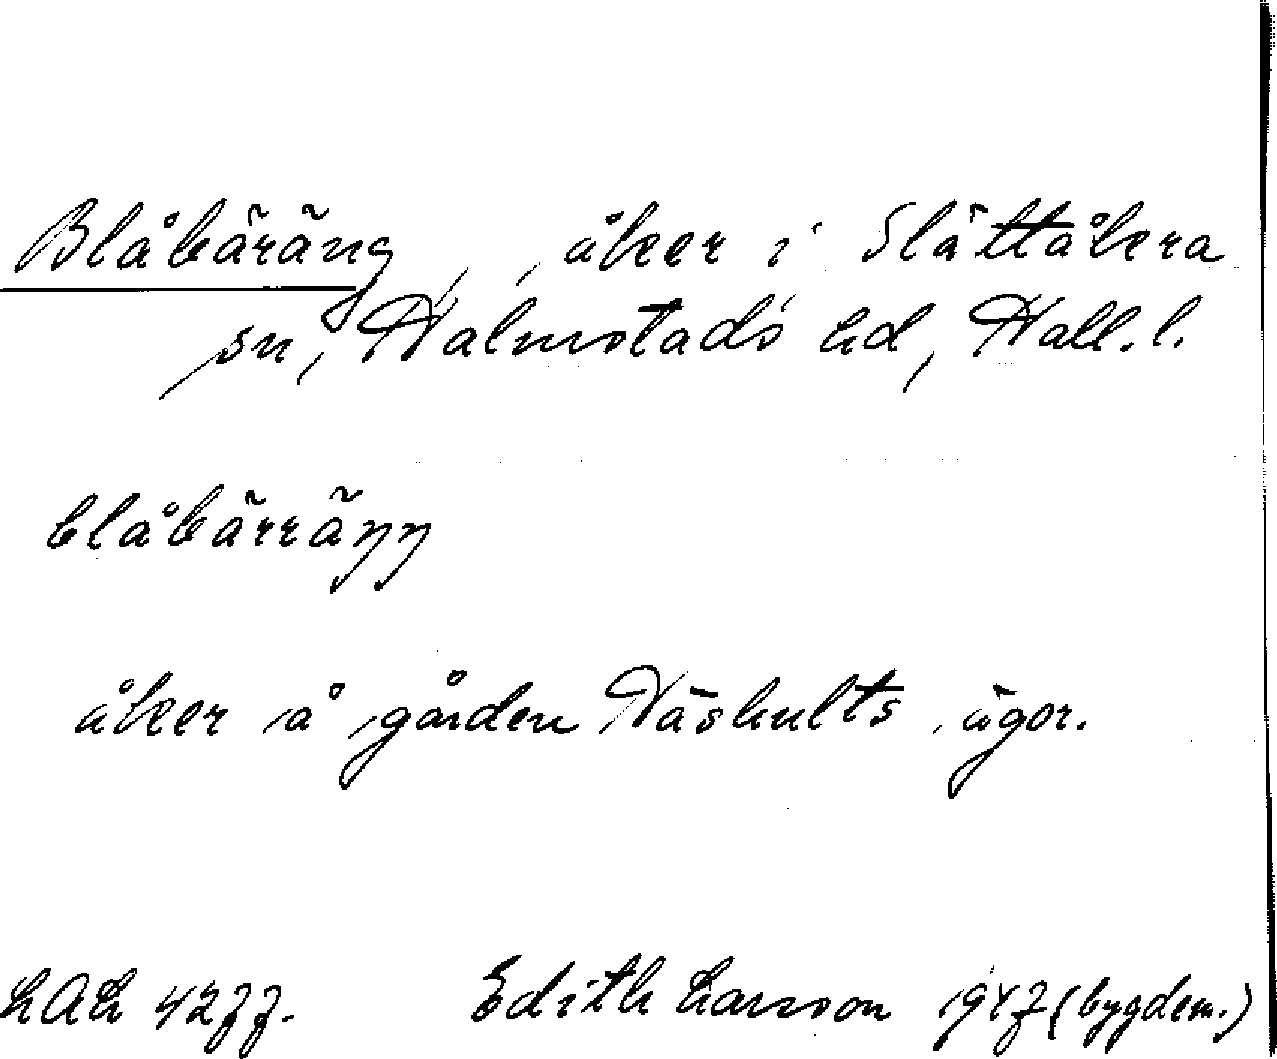 Blåbäräng, , åker i Slättåkra
sn, Halmstads hd, Hall. l.
blåbärräŋŋ
åker å gården Häshults ägor.
LAL 4277. Edith Larsson 1947 (bygdem.)